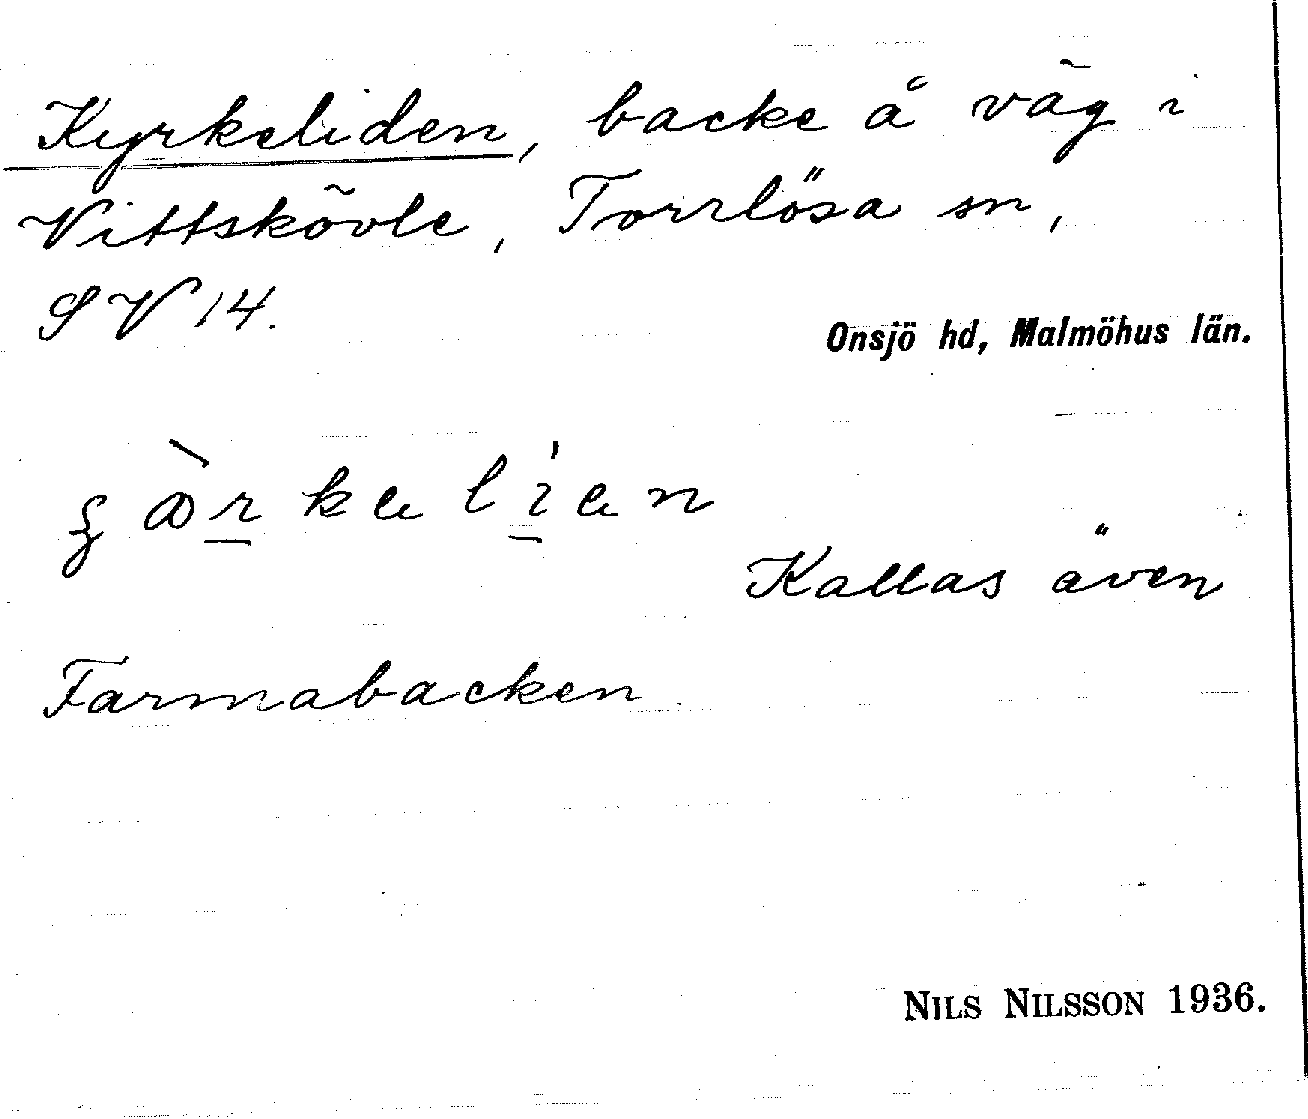 Kyrkeliden, backe å väg i
Vittskövle, Torrlösa sn,
SV 14.
Onsjö hd, Malmöhus län.
Kallas även
Farmabacken
NILS NILSSON 1936.